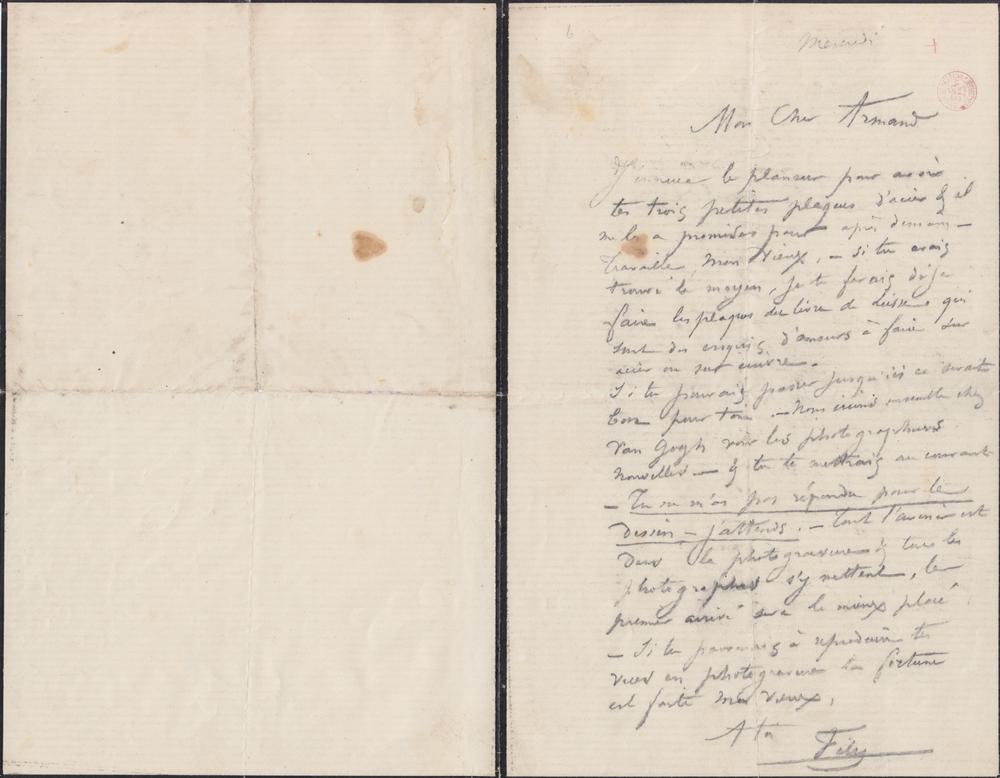 Mercredi
Mon Cher Armand
le planeur pour avoir
tes trois petites plaques d'acier & il
me les a promises pour après demain —
Travaille, mon vieux, — si tu avais
trouvé le moyen, je te ferais déjà
faire les plaques du livre de qui
sont des croquis d'amours à faire sur
acier ou sur cuivre.
Si tu pouvais passer jusqu'ici ce serait
bon pour toi. — Nous irions ensemble chez
Van Gogh voir les photogravures
nouvelles — & tu te mettrais au courant
— Tu ne m'as pas répondu pour le
dessin — j'attends. — tout l'avenir est
dans la photogravure & tous les
photographes s'y mettent, le
premier arrivé sera le mieux placé.
— Si tu parvenais à reproduire tes
vues en photogravure ta fortune
est faite mon vieux,
A toi
Fély